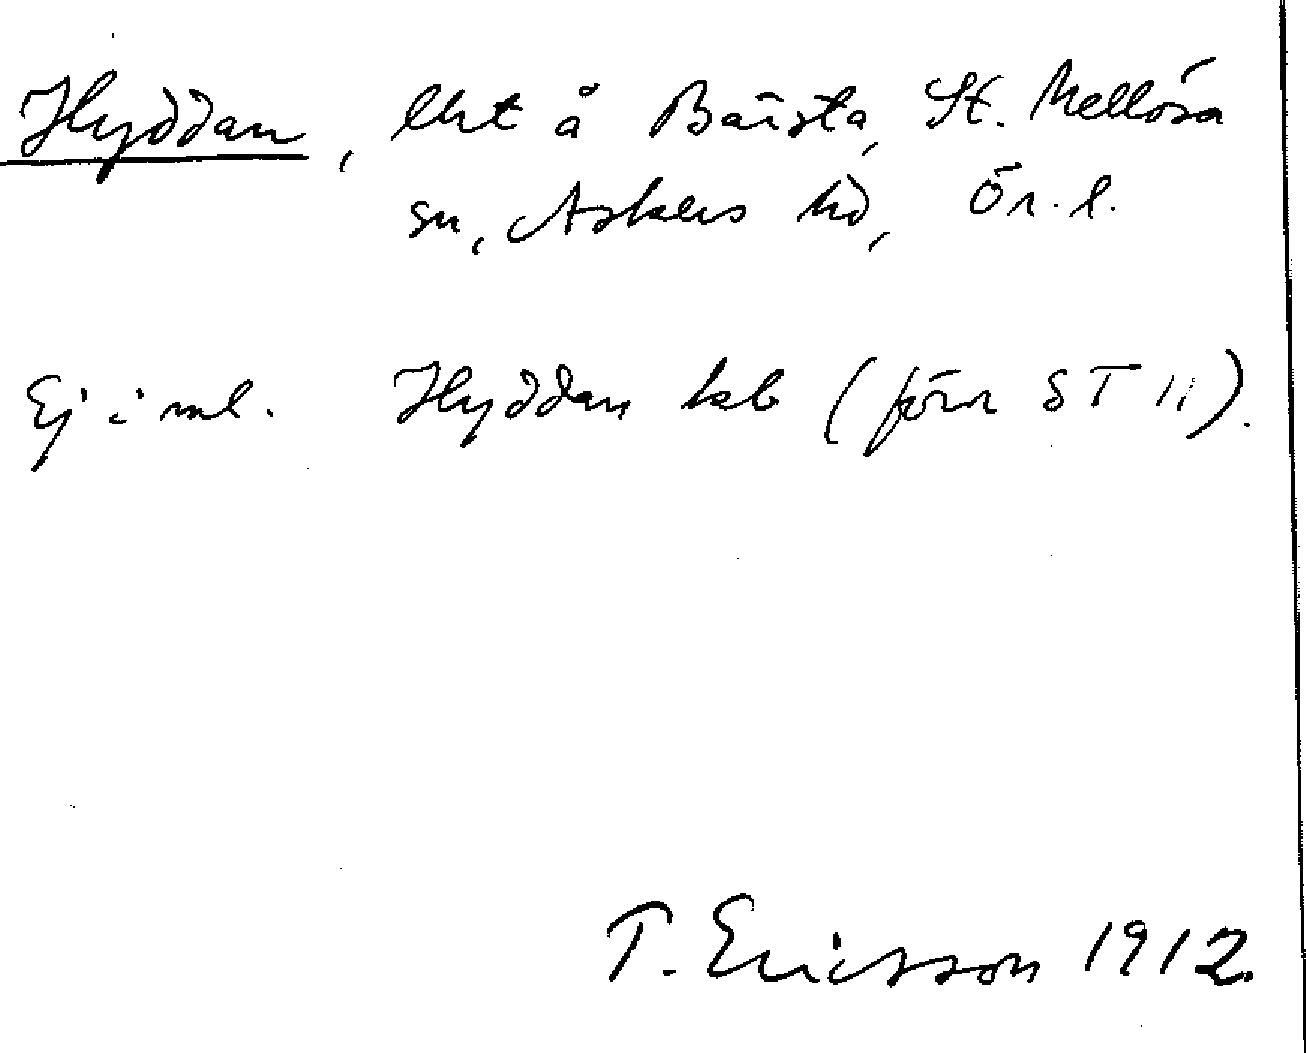 Hyddan, lht å Baista, St. Mellösa
sn, Askers hd, Ör. l.
Ej i ml. Hyddan ksb (förr ST 11).
T. Ericsson 1912.